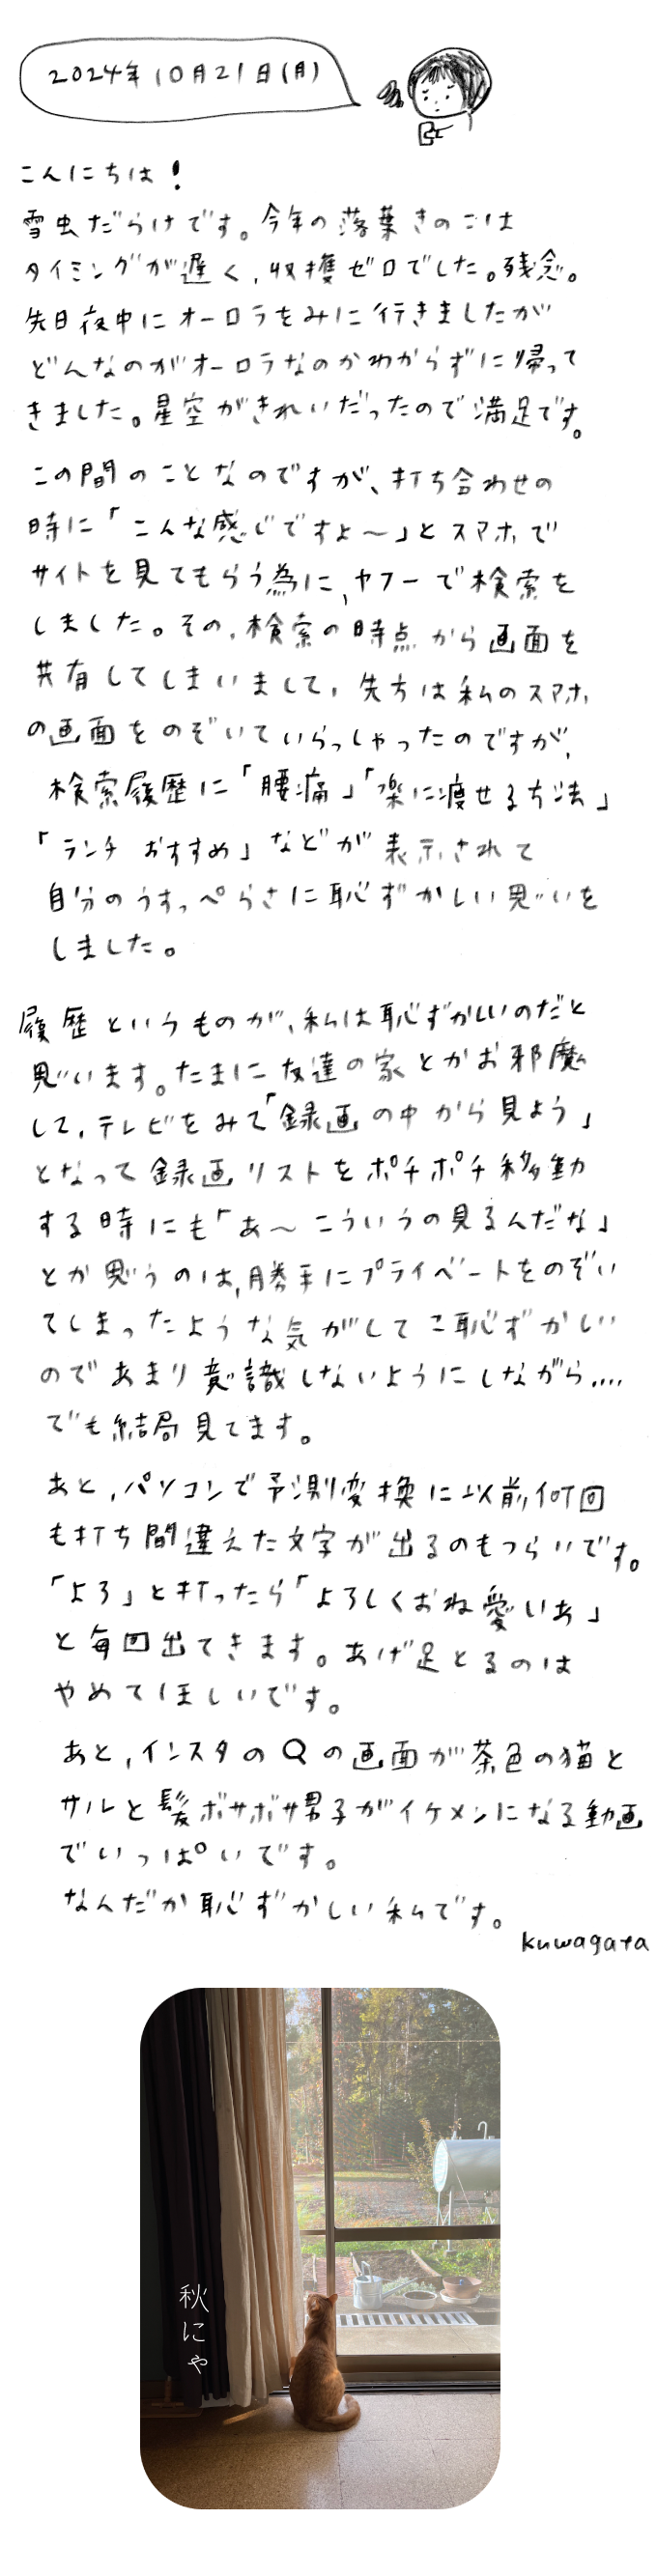 2024年10月21日(月)
こんにちは!
雪虫だらけです。今年の落葉きのこは
タイミングが遅く、収穫ゼロでした。残念。
先日夜中にオーロラをみに行きましたが
どんなのがオーロラなのかわからずに帰って
きました。星空がきれいだったので満足です。
この間のことなのですが、打ち合わせの
時に「こんな感じですよ〜」とスマホで
サイトを見てもらう為に、ヤフーで検索を
しました。その、検索の時点から画面を
共有してしまいまして、先方は私のスマホ
の画面をのぞいていらっしゃったのですが、
検索履歴に「腰痛」「楽に痩せる方法」
「ランチ おすすめ」などが表示されて
自分のうすっぺらさに恥ずかしい思いを
しました。
履歴というものが、私は恥ずかしいのだと
思います。たまに友達の家とかお邪魔
して、テレビをみて「録画の中から見よう」
となって録画リストをポチポチ移動
する時にも「あ〜こういうの見るんだな」
とか思うのは、勝手にプライベートをのぞい
てしまったような気がしてこ恥ずかしい
のであまり意識しないようにしながら....
でも結局見てます。
あと、パソコンで予測変換に以前何回
も打ち間違えた文字が出るのもつらいです。
「よろ」と打ったら「よろしくおね愛いあ」
と毎回出てきます。あげ足とるのは
やめてほしいです。
あと、インスタのQの画面が茶色の猫と
サルと髪ボサボサ男子がイケメンになる動画
でいっぱいです。
なんだか恥ずかしい私です。
kuwagata
秋にゃ